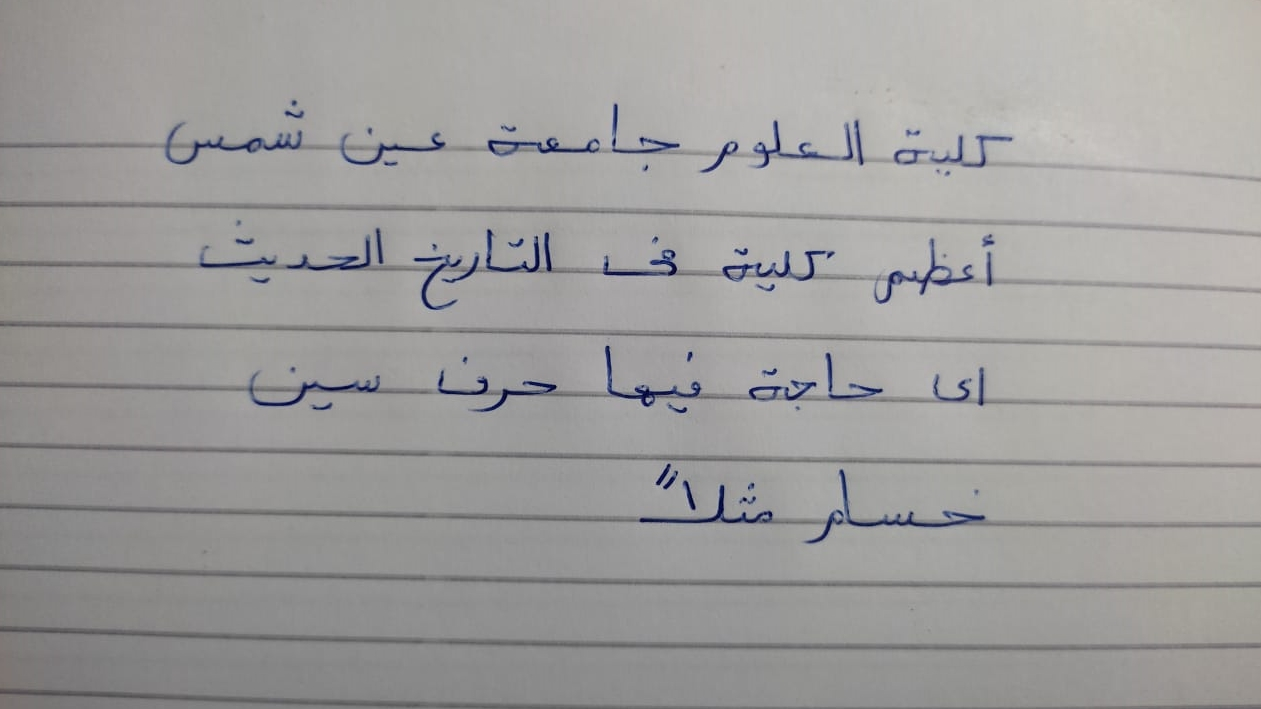 كلية العلوم جامعة عين شمس
أعظم كلية فى التاريخ الحديث
اى حاجة فيها حرف سين
خسام مثلاً